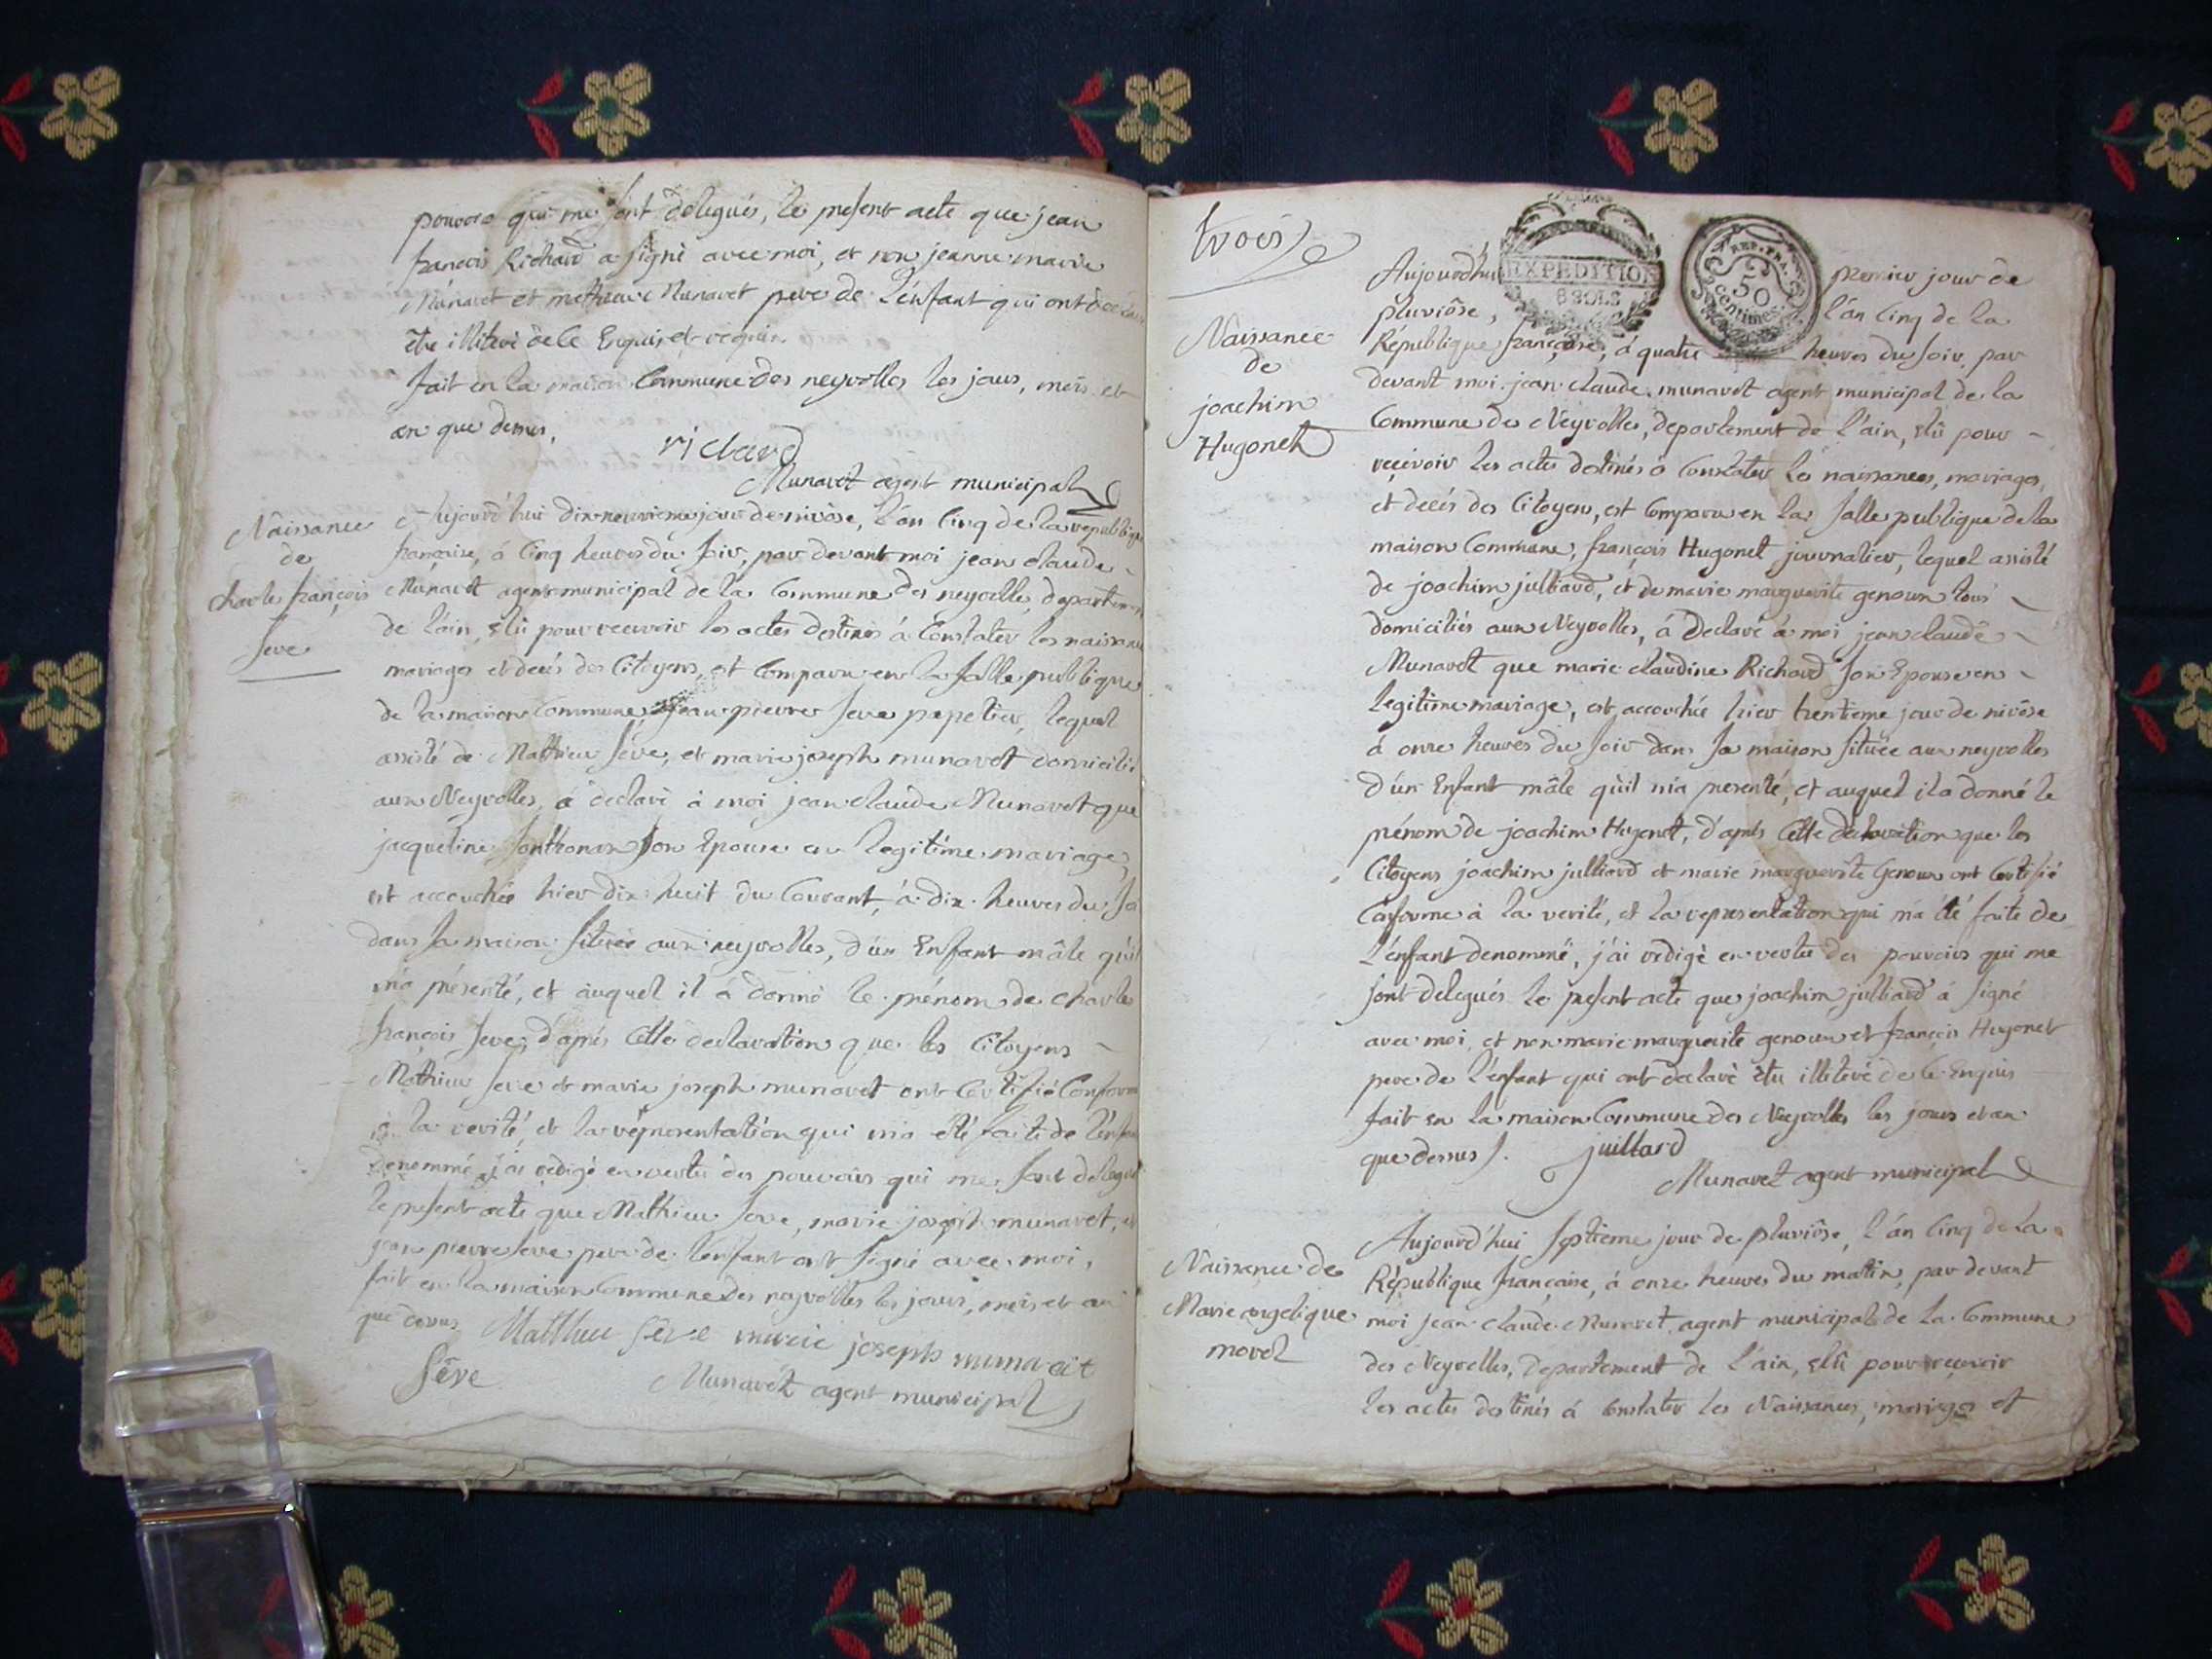 pouvoirs qui me sont delegués, le present acte que jean
francois Richard a signé avec moi, et non jeanne marie
Munavet et mathieu Munavet pere de l'enfant qui ont
être illiteré de ce Enquis et requis
fait en la maison Commune des neyrolles les jours, mois et
an que dessus.
richard
Munavet agent municipal
Naissance
de
charle françois
seve
Aujourd'hui dix neuvieme jour de nivôse, l'an Cinq de la republique
française, à Cinq heures du soir, par devant moi jean claude
Munavet agent municipal de la Commune des neyrolles, departement
de l'ain, élû pour recevoir les actes destinés à Constater les naissances
mariages et decés des Citoyens, est Comparu en la salle publique
de la maison Commune, jean pierre seve papetier, lequel
assisté de Mathieu seve, et marie joseph munavet domiciliés
aux Neyrolles, à declaré à moi jean claude Munavet que
jacqueline sonthonax son Epouse en legitime mariage,
est accouchée hier dix huit du Courant, à dix heures du soi
dans sa maison située aux neyrolles, d'un Enfant mâle qu'il
m'a présenté, et auquel il à donné le prénom de charle
françois seve, d'aprés Cette declaration que les Citoyens
Mathieu seve et marie joseph munavet ont Certifié Conforme
à la vérité, et la représentation qui m'a été faite de l'enfant
denommé, j'ai redigé en vertu des pouvoirs qui me sont delegués
le present acte que Mathieu seve, marie joseph munavet, et
jean pierre seve pere de l'enfant ont signé avec moi,
fait en la maison Commune des neyrolles les jours, mois et an
que dessus
Matthieu sève marie joseph munavet
Sève
Munavet agent municipal
trois
EXPEDITION
8 SOLS
REP. FRA.
50
centimes
Naissance
de
joachim
Hugonet
Aujourd'hui premier jour de
pluviôse, l'an Cinq de la
République française, à quatre heures du soir, par
devant moi jean claude munavet agent municipal de la
Commune des Neyrolles, departement de l'ain, élû pour
reçevoir les actes destinés à Constater les naissances, mariages,
et decés des Citoyens, est Comparu en la salle publique de la
maison Commune, françois Hugonet journalier, lequel assisté
de joachim julliard, et de marie marguerite genoux tous
domiciliés aux Neyrolles, à declaré à moi jean claude
Munavet que marie claudine Richard son Epouse en
legitime mariage, est accouchée hier trentieme jour de nivôse
à onze heures du soir dans sa maison située aux neyrolles
d'un Enfant mâle qu'il m'a presenté, et auquel il a donné le
prénom de joachim Hugonet, d'aprés Cette declaration que les
Citoyens joachim julliard et marie marguerite Genoux ont Certifié
Conforme à la verité, et la representation qui m'a été faite de
l'enfant denommé, j'ai redigé en vertu des pouvoirs qui me
sont delegués le present acte que joachim julliard à signé
avec moi, et non marie marguerite genoux et françois Hugonet
pere de l'enfant qui ont declaré être illiteré de ce Enquis
fait en la maison Commune des Neyrolles les jours et an
que dessus
juillard
Munavet agent municipal
Naissance de
Marie angelique
morel
Aujourd'hui septieme jour de pluviôse, l'an Cinq de la
République française, à onze heures du matin, par devant
moi jean claude Munavet, agent municipal de la Commune
des Neyrolles, departement de l'ain, élû pour recevoir
les actes destinés à Constater les Naissances, mariages et